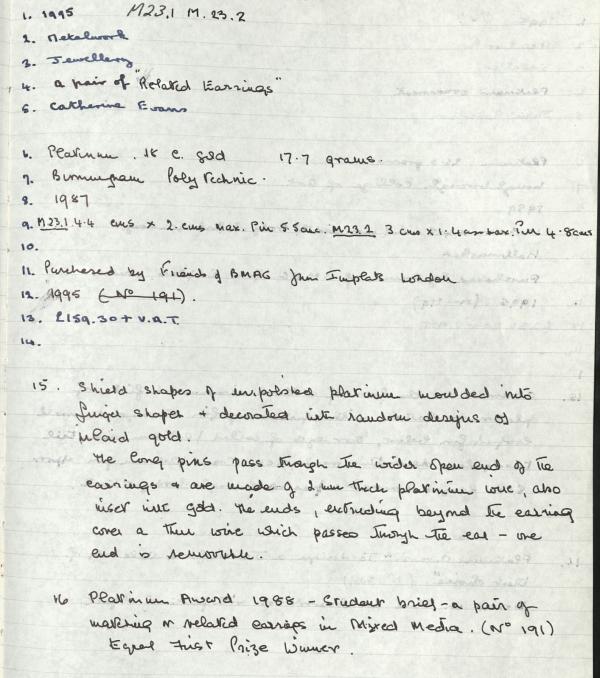 1. 1995 M23.1 M.23.2
2. Metalwork
3. Jewellery
4. a pair of "Related Earrings"
5. Catherine Evans
6. Platinum . 18 c. gold 17.7 grams.
7. Birmingham Polytechnic.
8. 1987
9. M23.1. 4.4 cms x 2. cms max. Pin 5.5cms. M23.2 3 cms x 1.4cms max. Pin 4.8cms
10.
11. Purchased by Friends of BMAG from Implats London
12. 1995 (No 191).
13. £159.30 + V.A.T.
14.
15. Shield shapes of unpolished platinum moulded into
finger shapes + decorated with random designs of
inlaid gold.
The long pins pass through the wider open end of the
earrings + are made of 2 mm thick platinum wire, also
inset with gold. The ends, extruding beyond the earring
cover a thin wire which passes through the ear - one
end is removable.
16 Platinum Award 1988 - Student brief - a pair of
matching or related earrings in Mixed Media. (No 191)
Equal First Prize Winner.